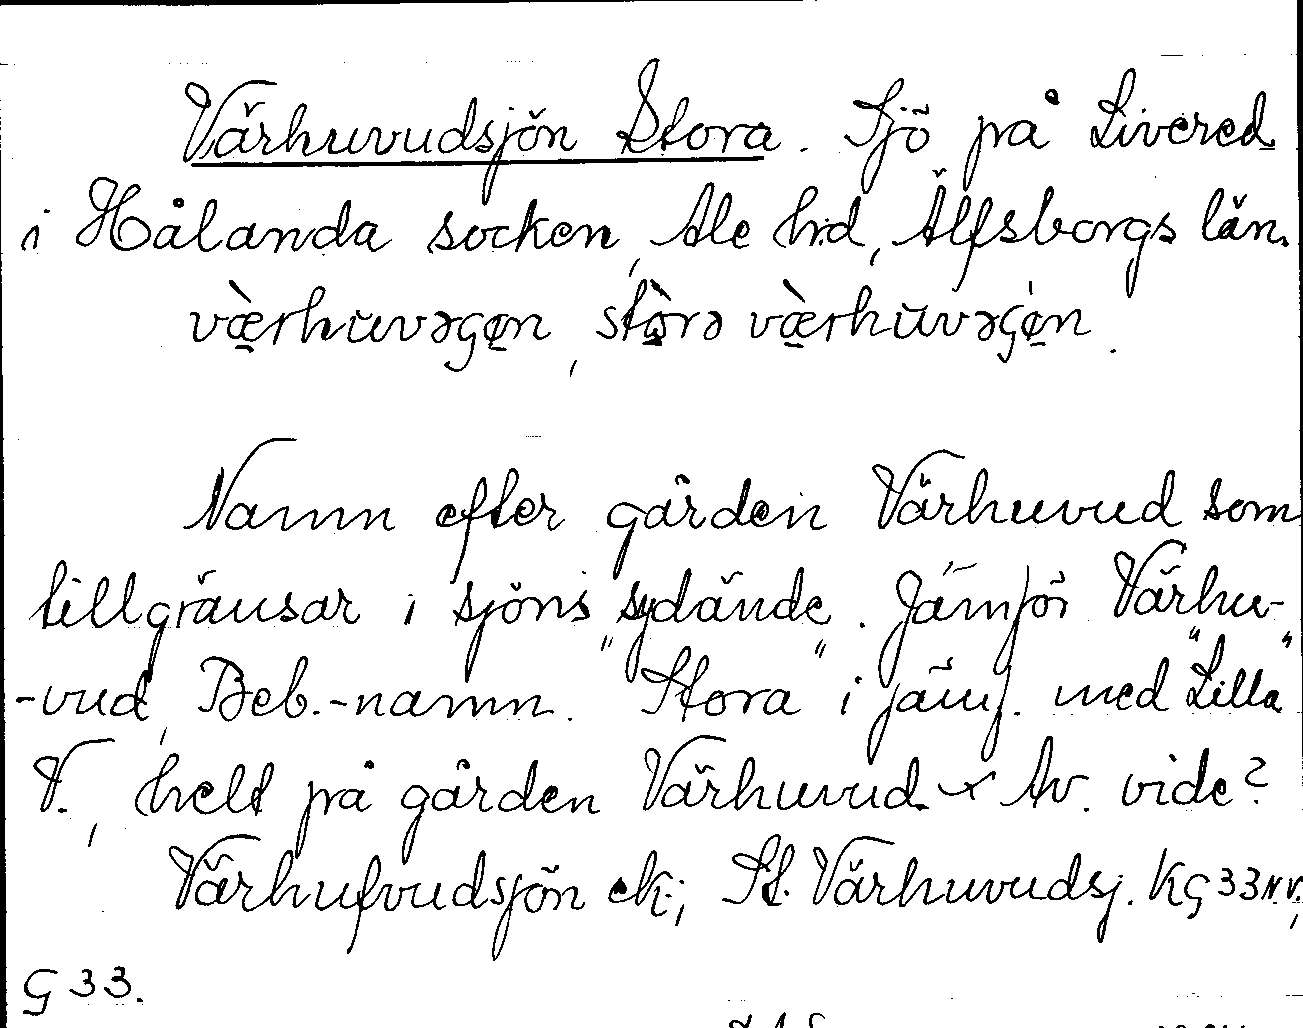 Värhuvudsjön Stora. Sjö på Livered
i Hålanda socken, Ale hd, Älfsborgs län.
stora
Namn efter gården Värhuvud som
tillgränsar i sjöns "sydände". Jämför Värhu-
-vud, Beb.-namn. "Stora" i jämf. med "Lilla"
V., helt på gården Värhuvud. Av. vide?
Värhufvudsjön ek.; St. Värhuvudsj. KG 33 N.V.,
G 33.